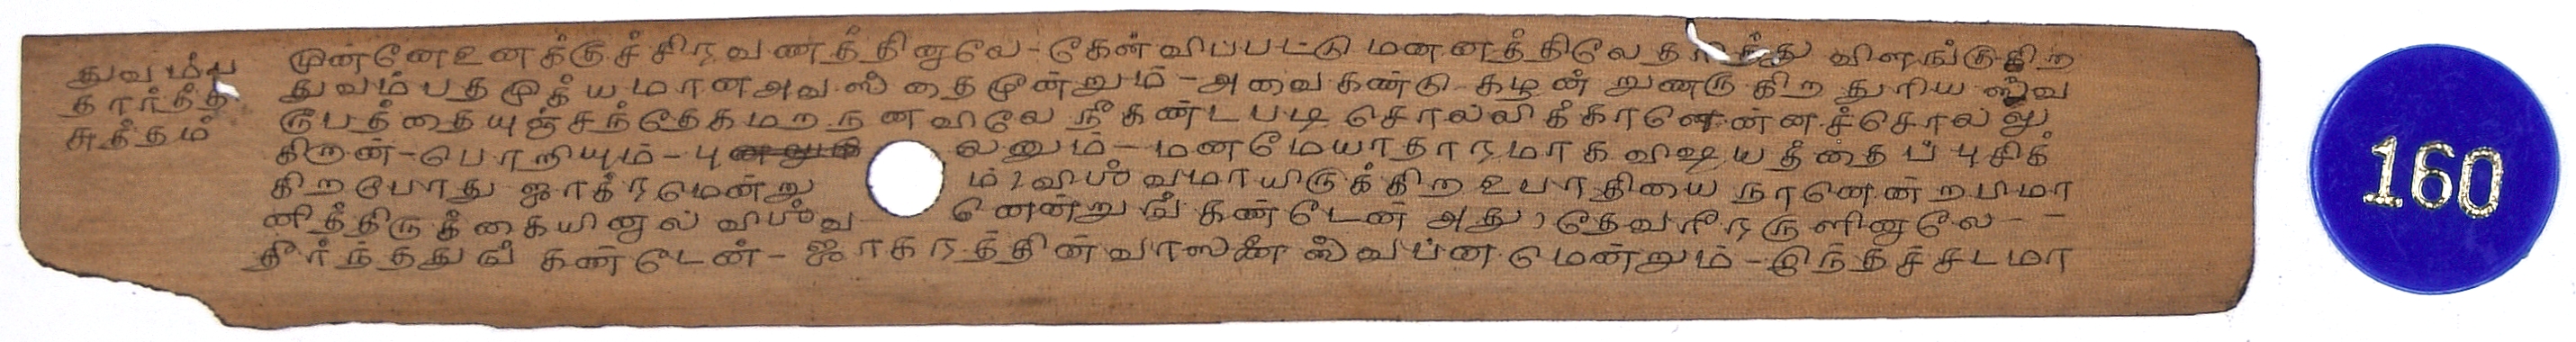 துவம்ப
தார்த்த
சுத்தம்
முன்னே உனக்குச்சிரவணத்தினாலே - கேள்விப்பட்டு மனனத்திலே தரித்து விளங்குகிற
துவம்பத முக்யமான அவஸ்தை மூன்றும் - அவை கண்டு கழன் றுணருகிற துரிய ஸ்வ
ரூபத்தையுஞ்சந்தேகமற நனவிலே நீ கண்டபடி சொல்லிக்காணென்னச்சொல்லு
கிறான் - பொறியும் - பு லனும் - மனமேயாதாரமாக விஷயத்தைப் புசிக்
கிறபோது ஜாக்ரமென்று ம் விஶ்வமாயிருக்கிற உபாதியை நானென் றபிமா
னித்திருக்கையினால் விஶ்வ னென்றுங் கண்டேன் அது தேவரீரருளினாலே - -
தீர்ந்ததுங் கண்டேன் - ஜாக்ரத்தின் வாஸனை ஸ்வப்ன மென்றும் - இந்தச்சடமா
160